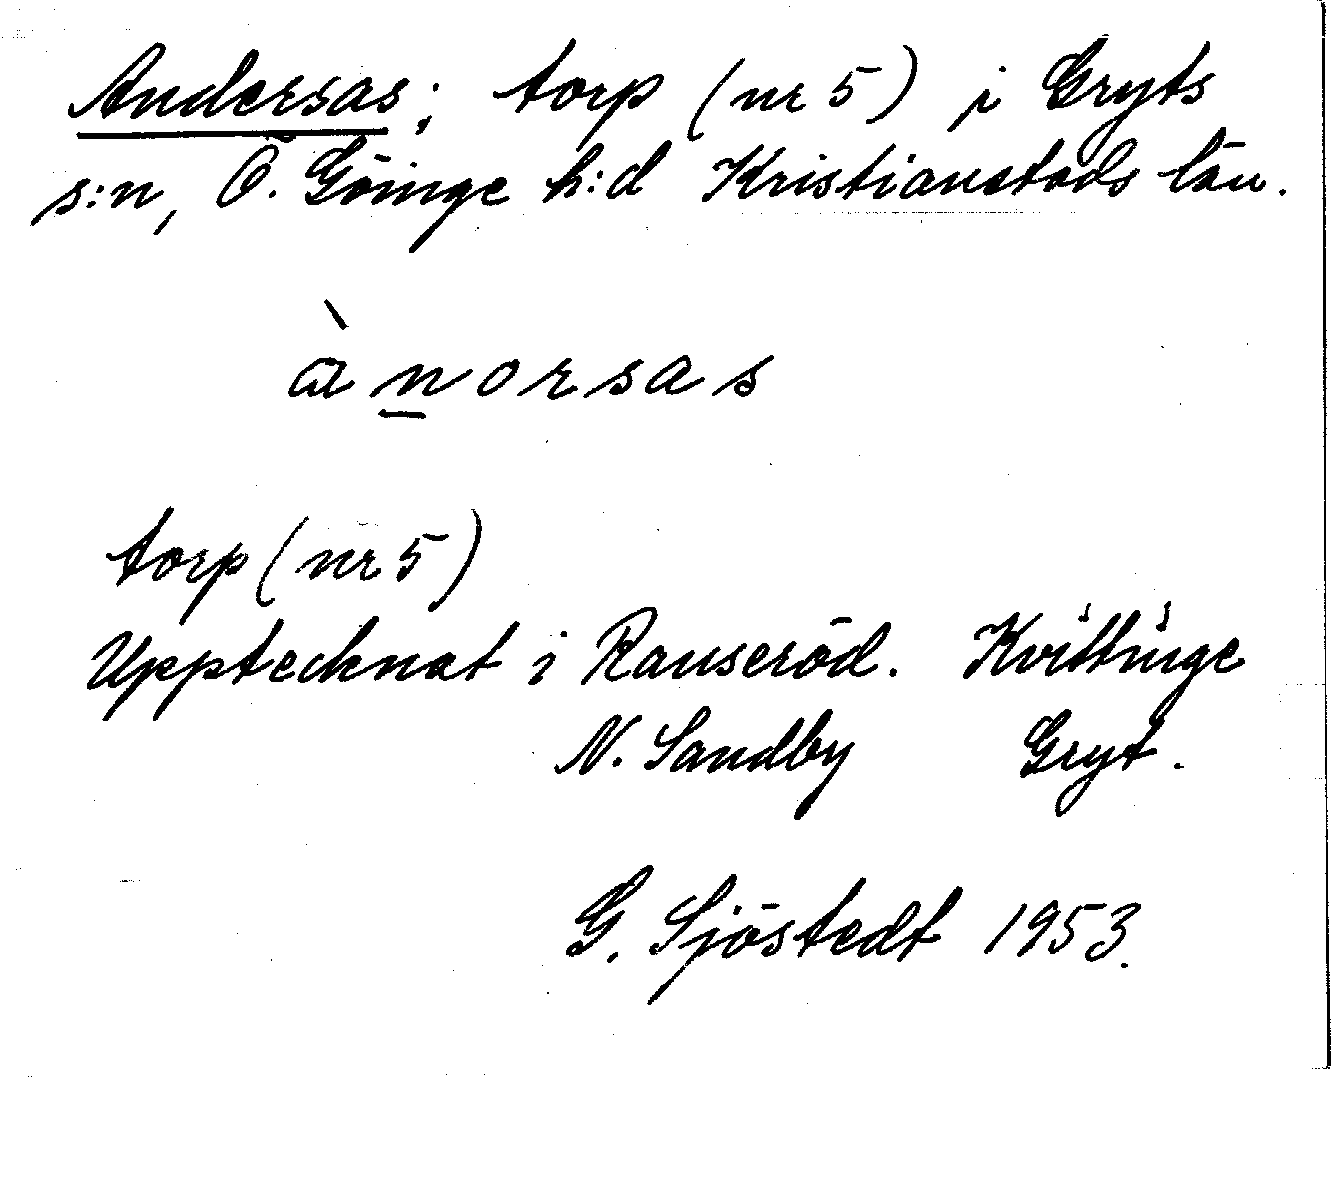 Andersas; torp (nr 5) i Gryts
s:n, Ö. Göinge h:d Kristianstads län.
ànorsas
torp (nr 5)
Upptecknat i Rauseröd. Kvittinge
N. Sandby Gryt.
G. Sjöstedt 1953.